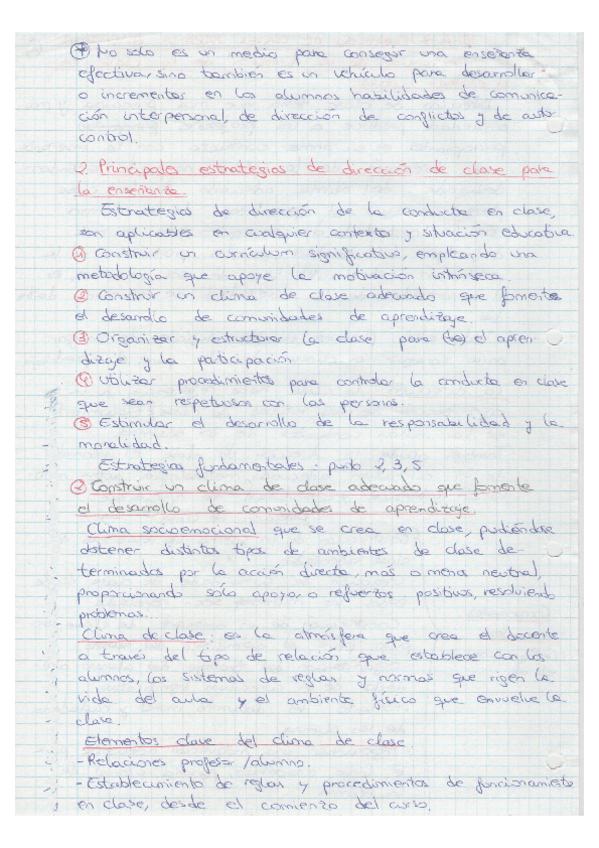 * No solo es un medio para conseguir una enseñanza
efectiva, sino también es un vehículo para desarrollar
o incrementar en los alumnos habilidades de comunica-
ción interpersonal, de dirección de conflictos y de auto-
control.
2. Principales estrategias de dirección de clase para
la enseñanza
Estrategias de dirección de la conducta en clase,
son aplicables en cualquier contexto y situación educativa
① Construir un currículum significativo, empleando una
metodología que apoye la motivación intrínseca.
② Construir un clima de clase adecuado que fomente
el desarollo de comunidades de aprendizaje.
③ Organizar y estructurar la clase para el apren-
dizaje y la participación
④ Utilizar procedimientos para controlar la conducta en clase
que sean respetuosos con las personas.
⑤ Estimular el desarrollo de la responsabilidad y la
moralidad.
Estrategias fundamentales: punto 2, 3, 5
② Construir un clima de clase adecuado que fomente
el desarrollo de comunidades de aprendizaje.
Clima socioemocional que se crea en clase, pudiéndose
obtener distintos tipos de ambientes de clase de-
terminados por la acción directa, más o menos neutral,
proporcionando sólo apoyo, o refuerzos positivos, resolviendo
problemas.
Clima de clase: es la atmósfera que crea el docente
a través del tipo de relación que establece con los
alumnos, los sistemas de reglas y normas que rigen la
vida del aula y el ambiente físico que envuelve la
clase.
Elementos clave del clima de clase
- Relaciones profesor/alumno.
- Establecimiento de reglas y procedimientos de funcionamiento
en clase, desde el comienzo del curso.